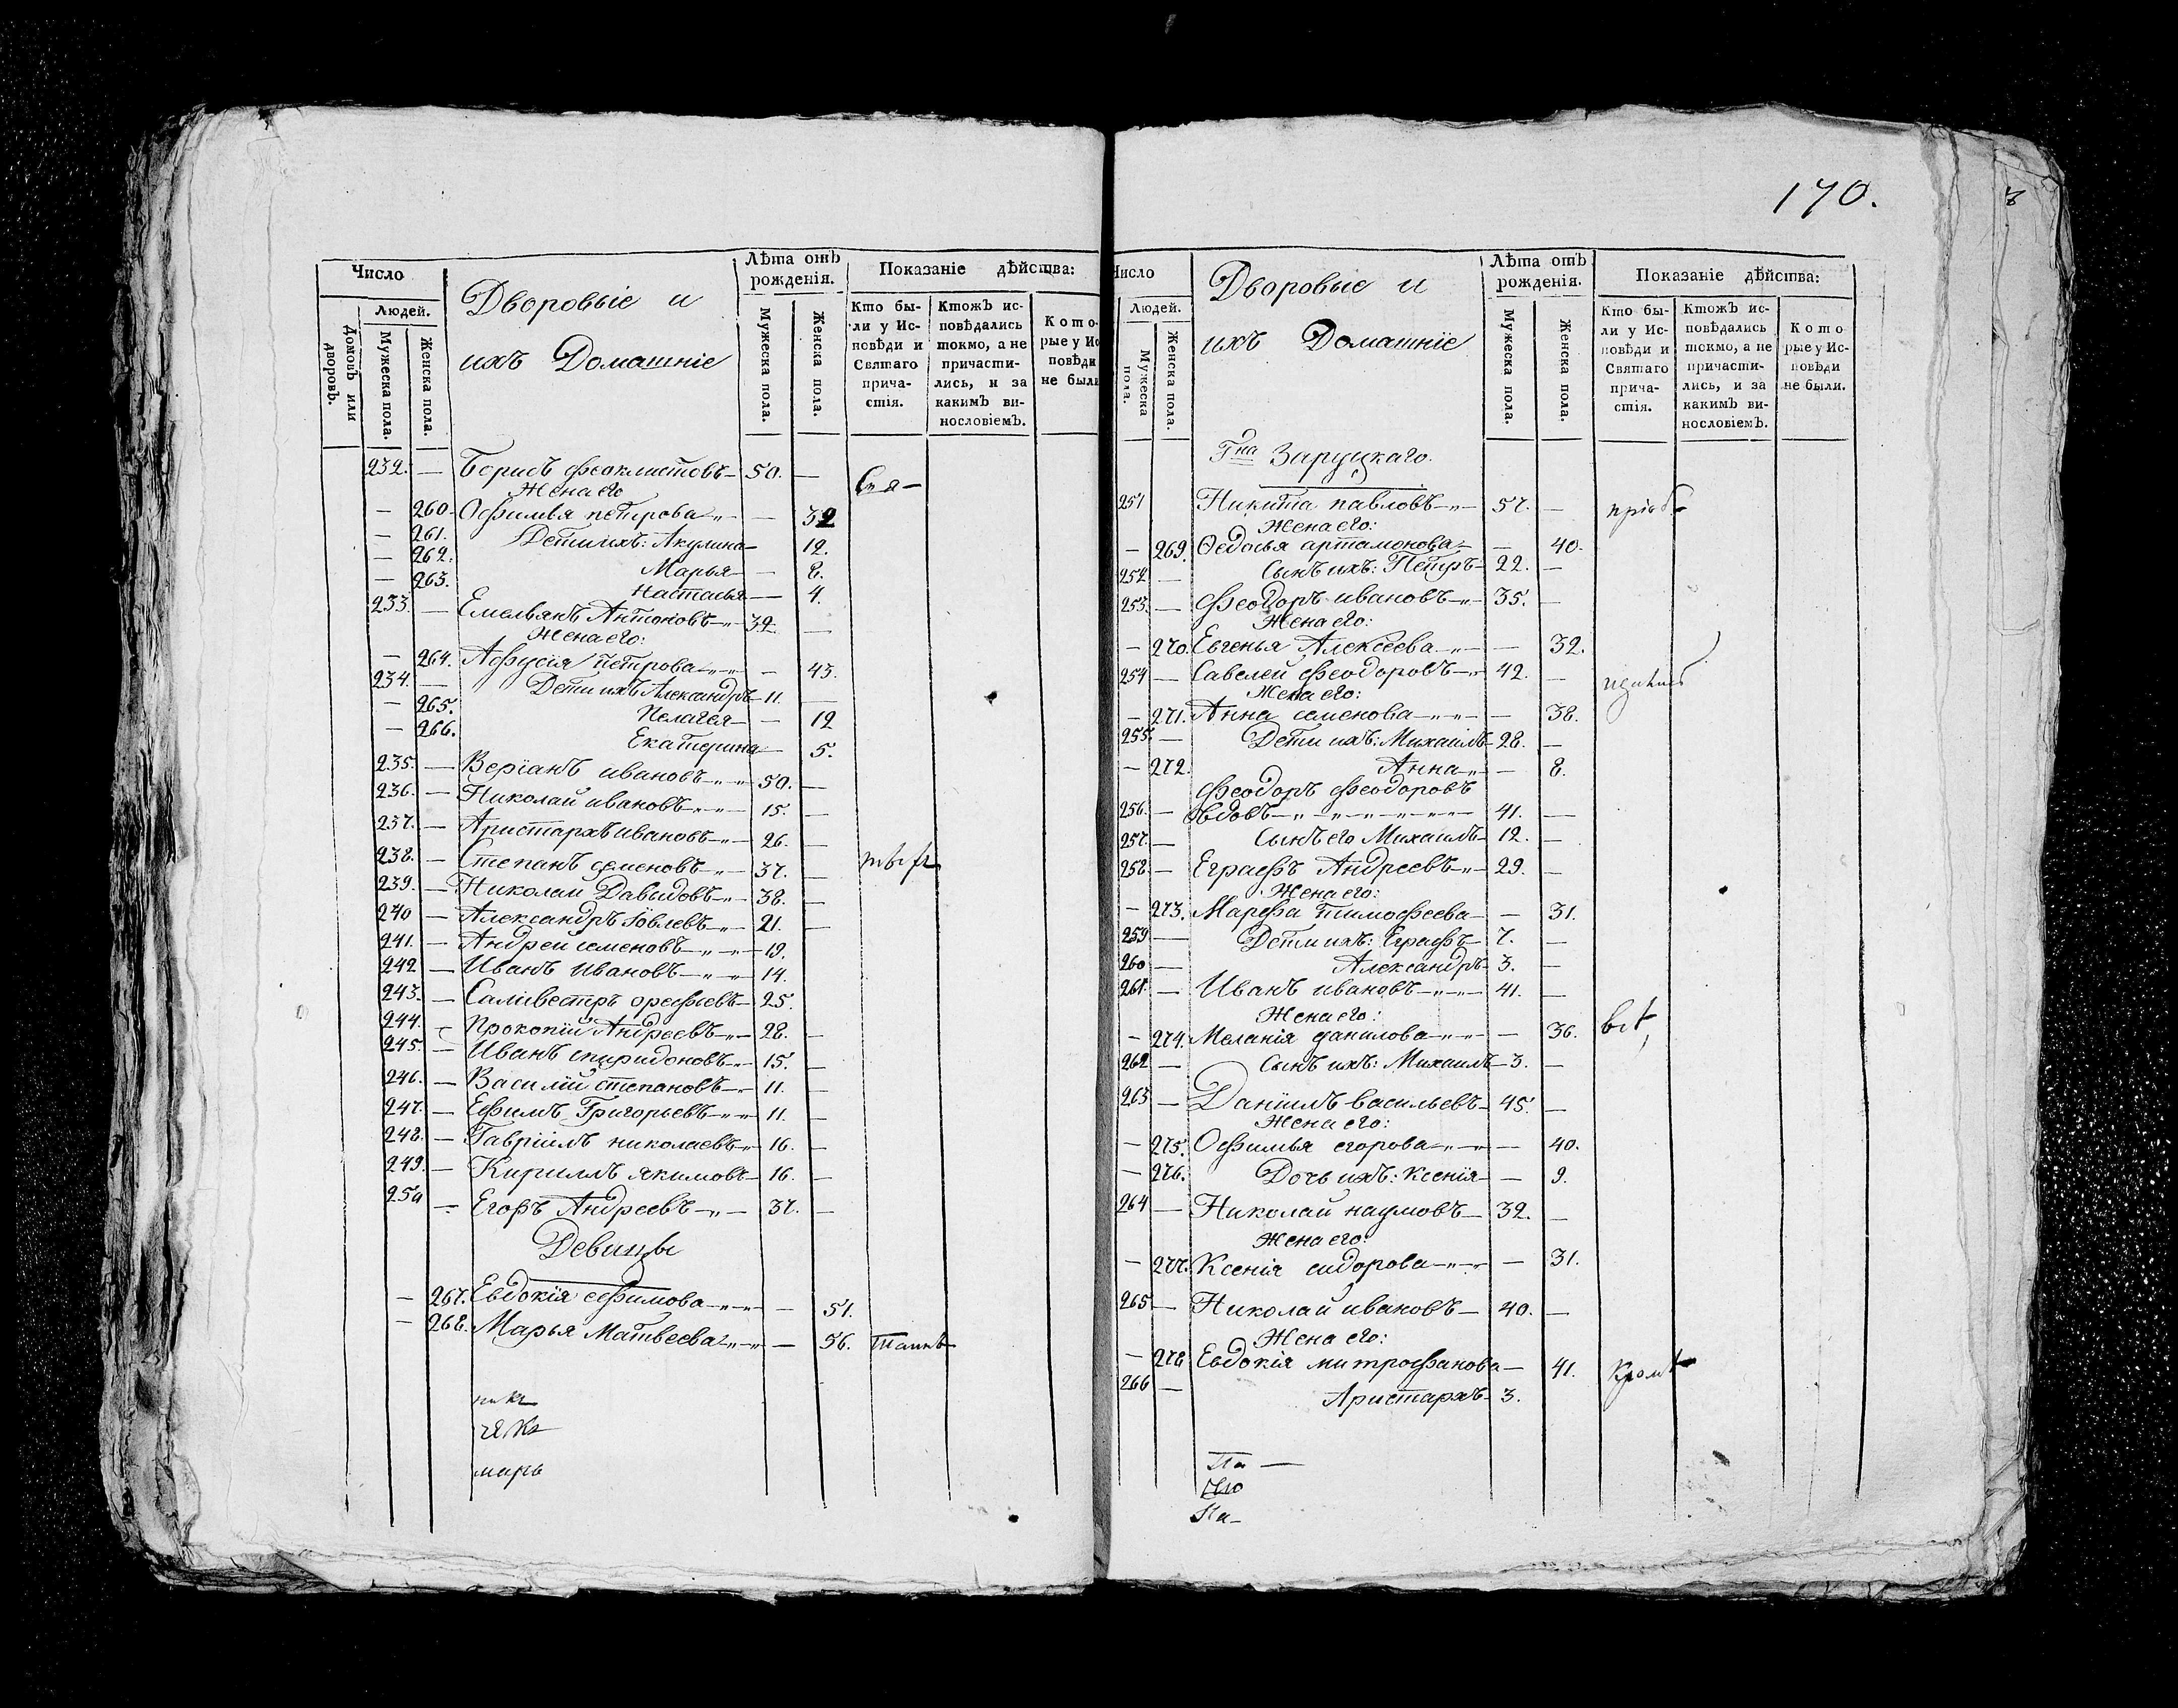 Число
Людей.
Домовъ или дворовъ.
Мужеска пола.
Женска пола.
Дворовые и
ихъ Домашніе
Лѣта отъ рожденія.
Мужеска пола.
Женска пола.
Показаніе дѣйства:
Кто бы-
ли у Ис-
повѣди и
Святаго
прича-
стія.
Ктожъ ис-
повѣдались
токмо, а не
причасти-
лись, и за
какимъ ви-
нословіемъ.
Кото-
рые у Ис
повѣди
не были
232. — Борисъ Феоклистовъ — 50. —
Жена его
— 260. Офимья петрова — 32
— 261. Дети ихъ: Акулина — 12.
— 262. Марья — — 8.
— 263. Настасья — 4.
233. — Емельянъ Антоновъ — 32 —
Жена его:
— 264. Афусія петрова — — 43.
234. — Дети ихъ Александръ — 11. —
— 265. Пелагея — — 12
— 266. Екатерина — 5.
235. — Веріанъ ивановъ — 50. —
236. — Николай ивановъ — 15. —
237. — Аристархъ ивановъ — 26. —
238. — Степанъ семеновъ — 37. —
239. — Николай Давыдовъ — 38. —
240 — Александръ Іовлевъ — 21. —
241. — Андрей семеновъ — 19.
242 — Иванъ Ивановъ — 14.
243. — Саливестръ орефьевъ — 25.
244. — Прокопій Андреевъ — 28. —
245. — Иванъ спиридоновъ — 15. —
246. — Василій степановъ — 11. —
247. — Ефимъ Григорьевъ — 11. —
248. — Гавріилъ николаевъ — 16. —
249. — Кирилъ якимовъ — 16. —
250 — Егоръ Андреевъ — 37. —
Девицы
— 267. Евдокія ефимова — — 51.
— 268. Марья Матвеева — — 56.
марь
170.
Число
Людей.
Мужеска пола.
Женска пола.
Дворовые и
ихъ Домашніе
Лѣта отъ рожденія.
Мужеска пола.
Женска пола.
Показаніе дѣйства:
Кто бы-
ли у Ис-
повѣди и
Святаго
прича-
стія.
Ктожъ ис-
повѣдались
токмо, а не
причасти-
лись, и за
какимъ ви-
нословіемъ.
Кото
рые у Ис-
повѣди
не были.
Гна Заруцкаго.
251 Никита павловъ — 57. —
Жена его:
— 269. Ѳедосья артамонова — — 40.
252 — Сынъ ихъ: Петръ — 22. —
253. — Феодоръ ивановъ — 35. —
Жена его:
— 270. Евгенья Алексеева — — 32.
254 — Савелей Феодоровъ — 42. —
Жена его:
— 271. Анна семенова — — 38.
255. — Дети ихъ: Михаилъ — 28. —
— 272. Анна — — 8.
Феодоръ Феодоровъ
256. — вдовъ — 41. —
257. — Сынъ его Михаилъ — 12. —
258 — Еграфъ Андреевъ — 29. —
Жена его:
— 273. Марфа Тимофеева — — 31.
259 — Дети ихъ: Еграфъ — 7. —
260 — Александръ — 3. —
261. — Иванъ ивановъ — 41. —
Жена его:
— 274. Меланія данилова — — 36.
262 — Сынъ ихъ: Михаилъ — 3. —
263 — Даніилъ васильевъ — 45. —
Жена его:
— 275. Офимья егорова — — 40.
— 276. Дочь ихъ: Ксенія — — 9.
264 — Николай наумовъ — 32. —
Жена его:
— 277. Ксенія сидорова — — 31.
265 — Николай ивановъ — 40. —
Жена его:
— 278 Евдокія митрофанова — 41.
266 — Аристархъ — 3.